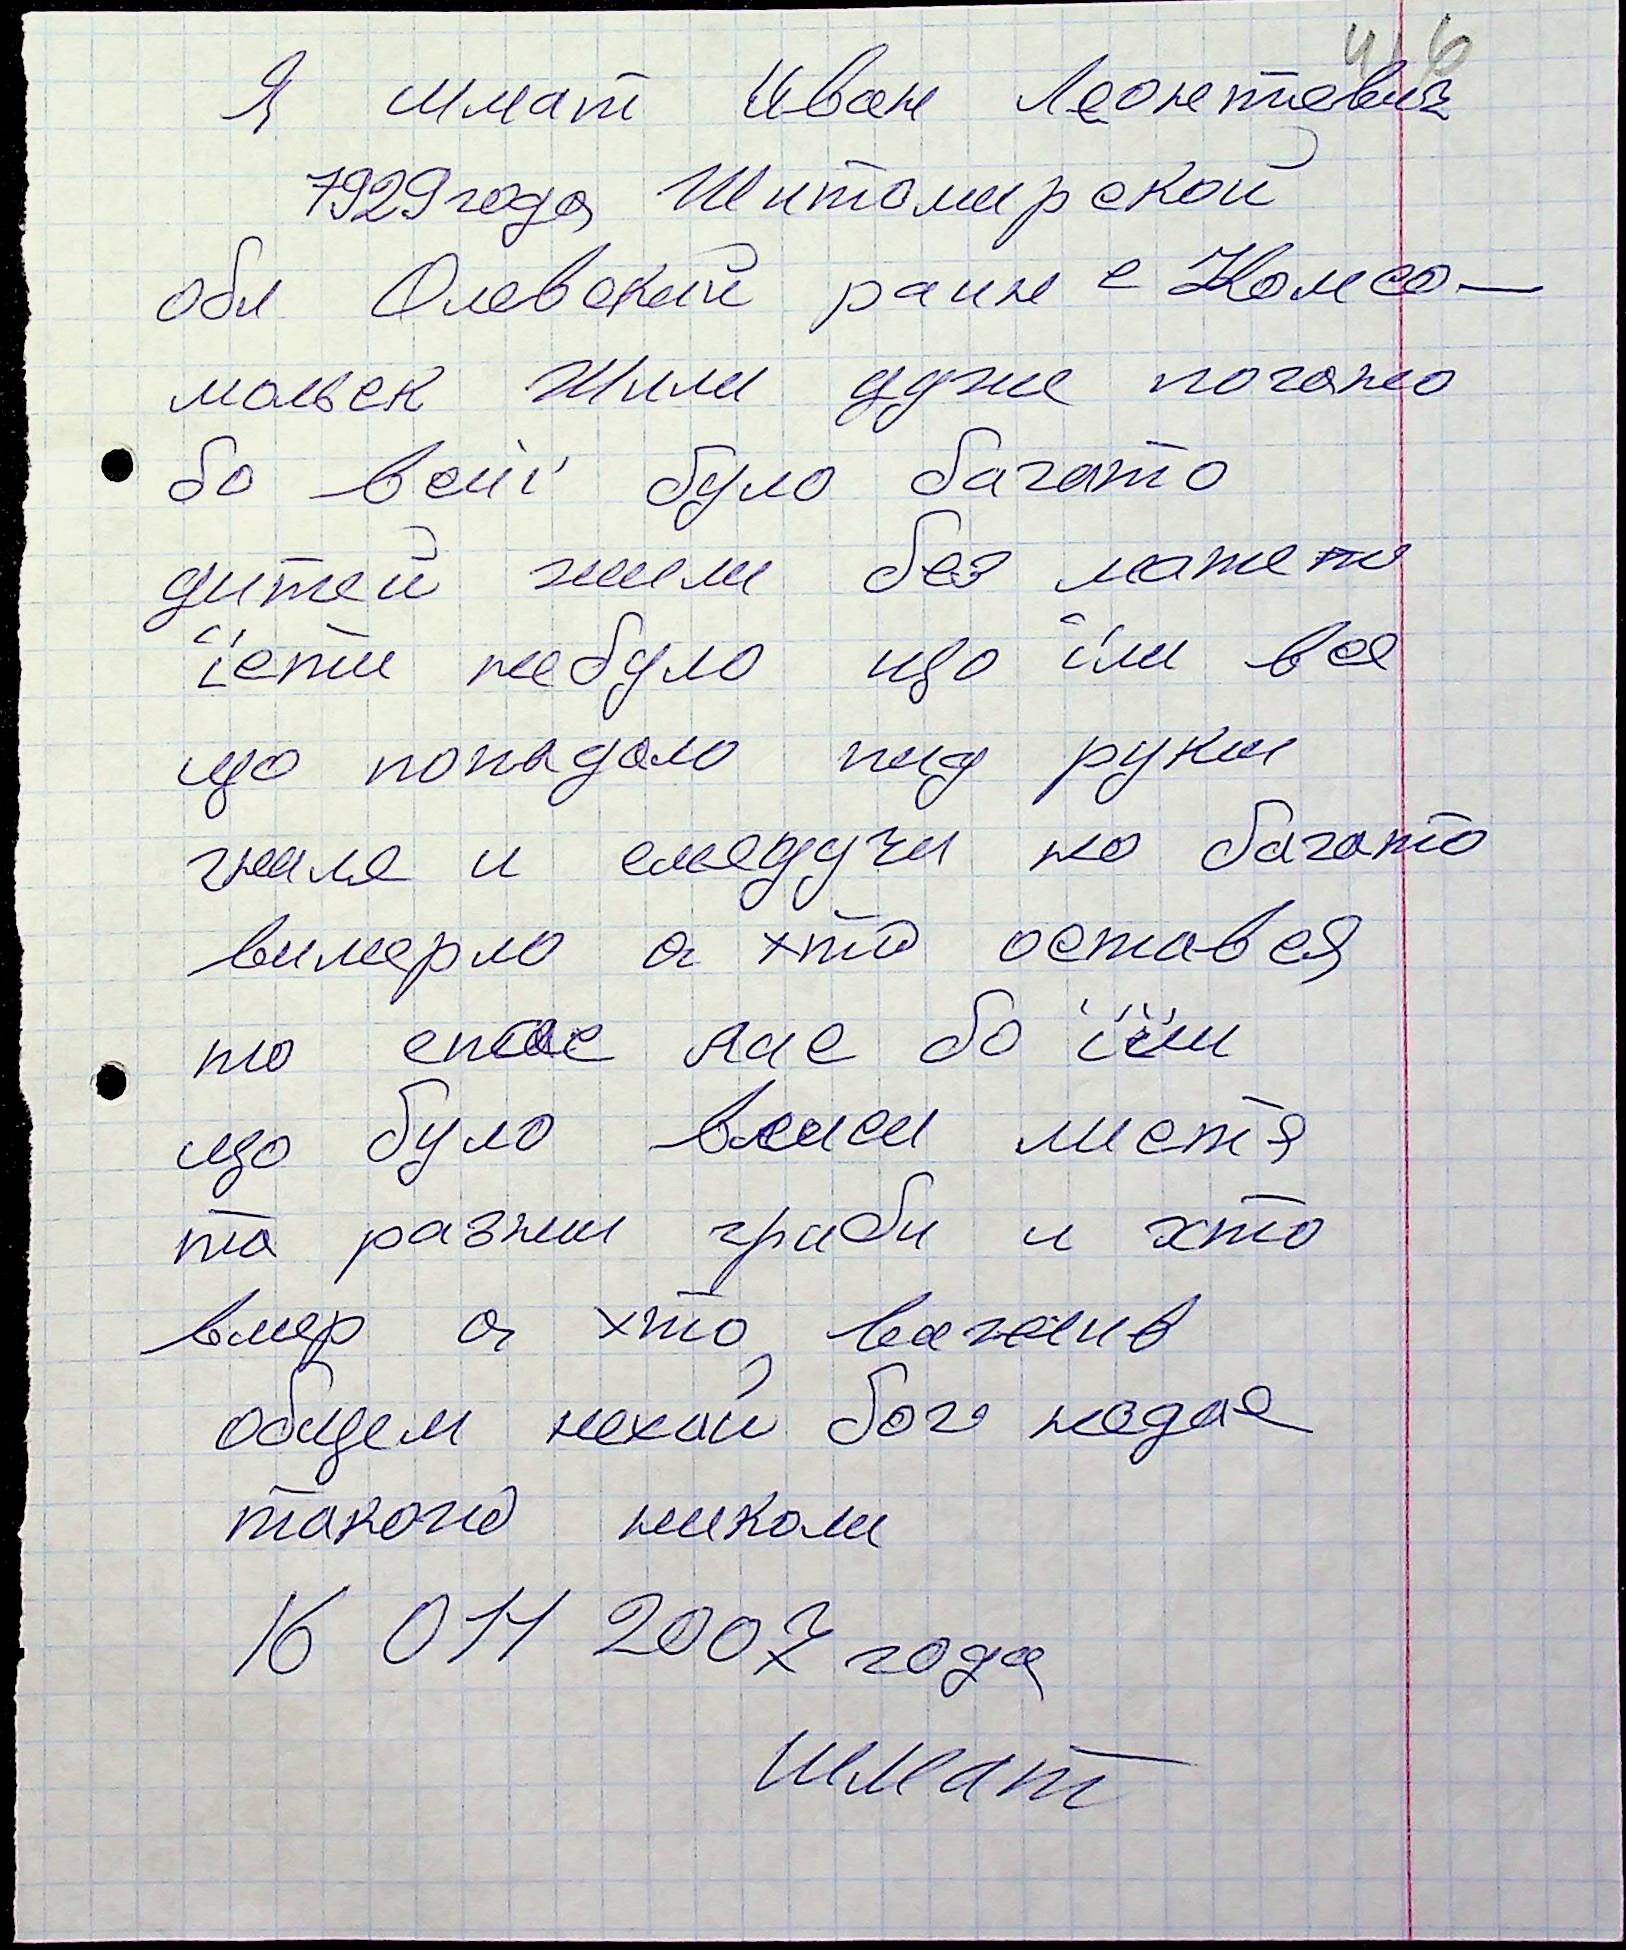 46
Я Шмат Иван Леонтиевич
1929 года Житомирской
обл Олевский раин с Комсо-
мольск Жили дуже погано
бо всмї було багато
дитей жили без матери
їсти небуло що їли все
що попадало пид руки
гниле и смердучи но багато
вимерло а хто оставея
то спас нас бо їли
що було всиси листя
та разни гриби и хто
вмер а хто вагнив
общем нехай бог недае
такого николи
16 011 2007 года
Шмат